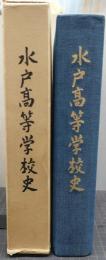 水戸高等学校史
水戸高等学校史